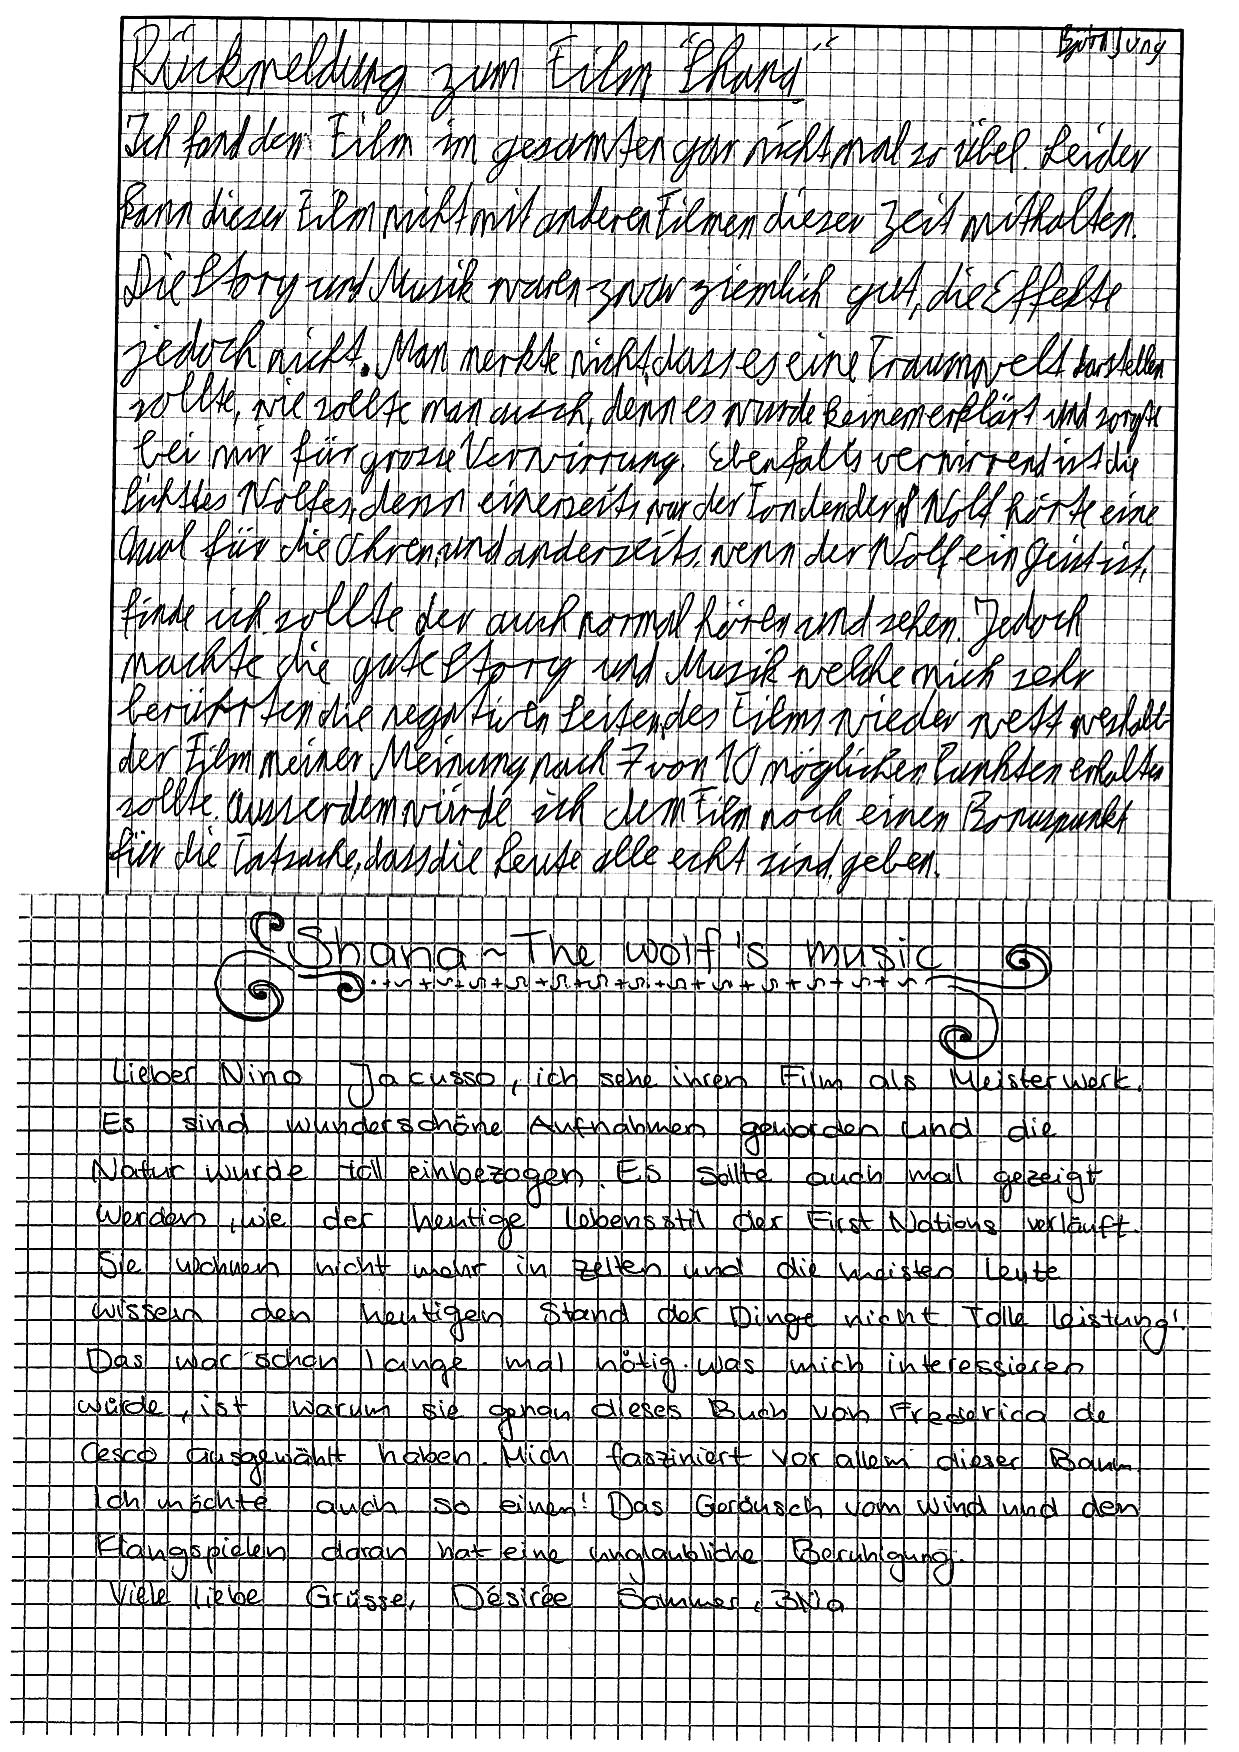 Björn Jung
Rückmeldung zum Film "Shana"
Ich fand den Film im gesamten gar nicht mal so übel. Leider
kann dieser Film nicht mit anderen Filmen dieser Zeit mithalten.
Die Story und Musik waren zwar ziemlich gut, die Effekte
jedoch nicht. Man merkte nicht, dass es eine Traumwelt darstellen
sollte, wie sollte man auch, denn es wurde keinem erklärt und sorgte
bei mir für grosse Verwirrung. Ebenfalls verwirrend ist die
Sicht des Wolfes, denn einerseits war der Ton den der Wolf hörte eine
Qual für die Ohren, und anderseits, wenn der Wolf ein Geist ist,
finde ich sollte der auch normal hören und sehen. Jedoch
machte die gute Story und Musik welche mich sehr
berührten die negativen Seiten des Films wieder wett weshalb
der Film meiner Meinung nach 7 von 10 möglichen Punkten erhalten
sollte. Ausserdem würde ich dem Film noch einen Bonuspunkt
für die Tatsache, dass die Leute alle echt sind, geben.
Shana ~ The wolf's music
Lieber Nino Jacusso, ich sehe ihren Film als Meisterwerk.
Es sind wunderschöne Aufnahmen geworden und die
Natur wurde toll einbezogen. Es sollte auch mal gezeigt
werden, wie der heutige Lebensstil der First Nations verläuft.
Sie wohnen nicht mehr in Zelten und die meisten Leute
wissen den heutigen Stand der Dinge nicht. Tolle Leistung!
Das war schon lange mal nötig. Was mich interessieren
würde, ist warum sie genau dieses Buch von Frederica de
Cesco ausgewählt haben. Mich fasziniert vor allem dieser Baum.
Ich möchte auch so einen! Das Geräusch vom Wind und den
Klangspielen daran hat eine unglaubliche Beruhigung.
Viele liebe Grüsse, Désirée Sommer, 3Na